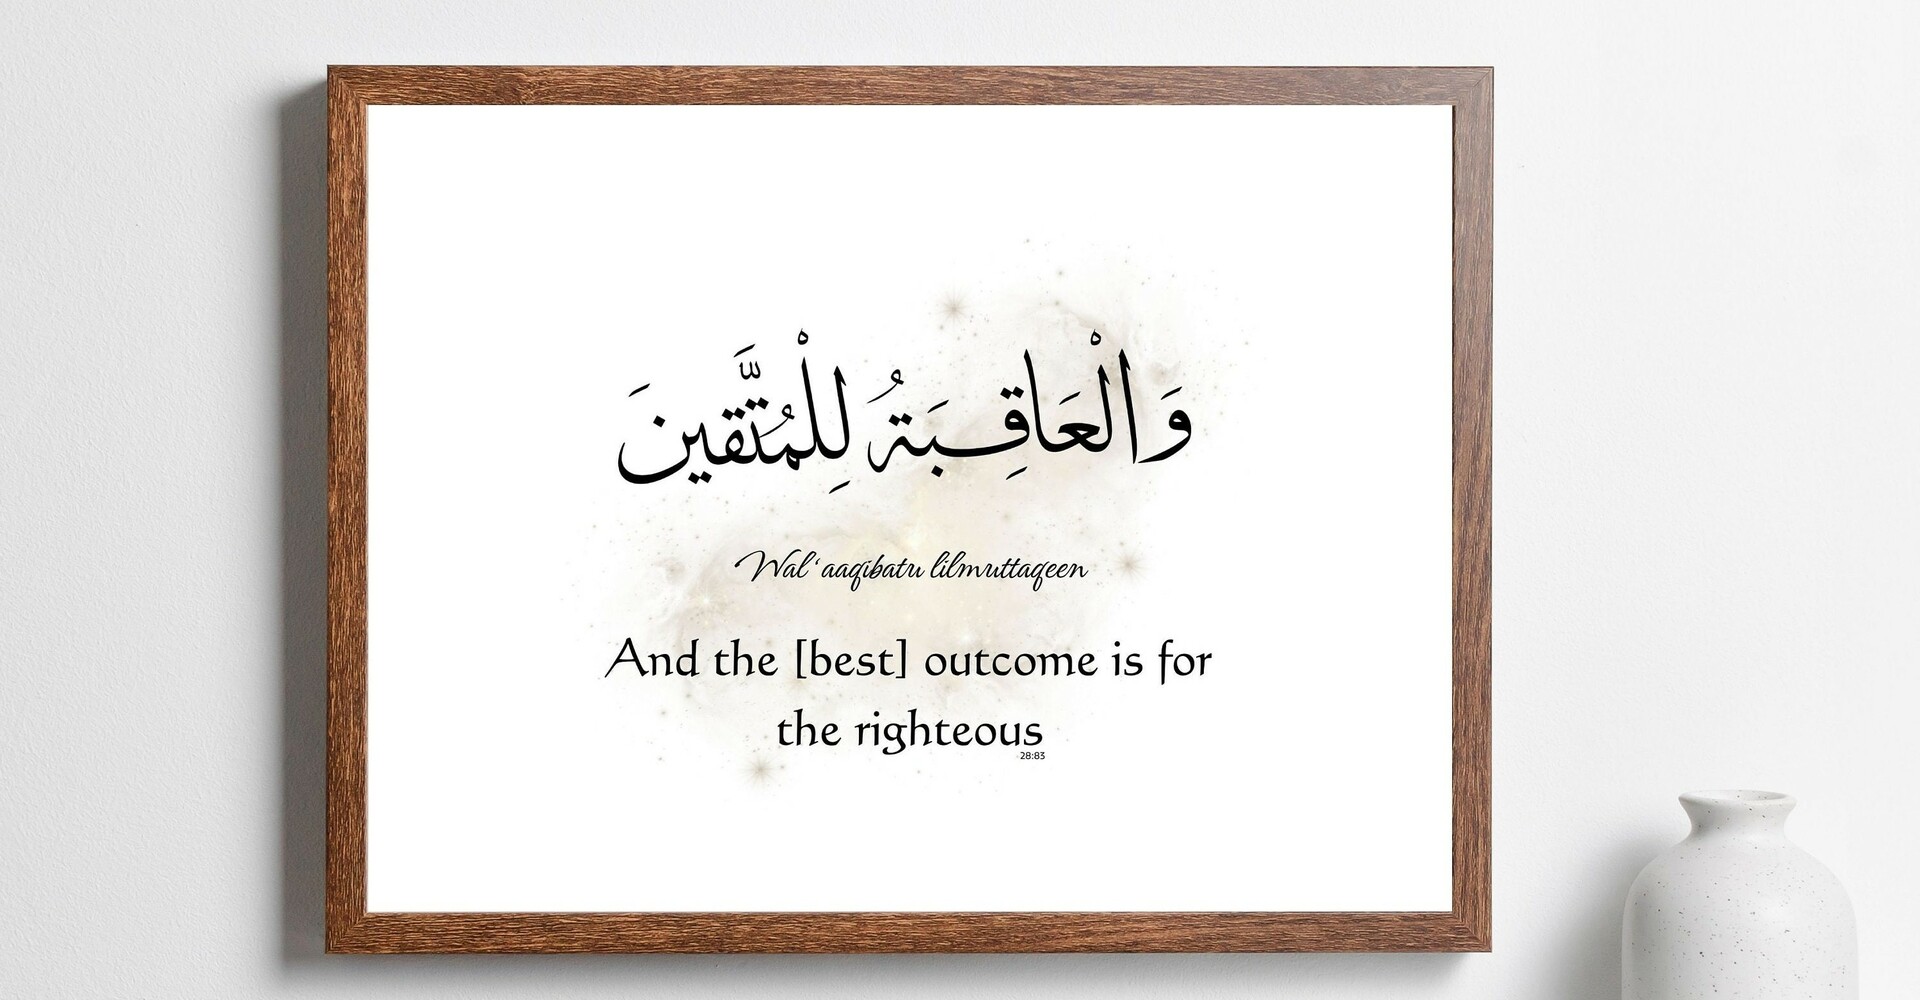 وَالْعَاقِبَةُ لِلْمُتَّقِينَ
Wal'aaqibatu lilmuttaqeen
And the [best] outcome is for
the righteous
28:83